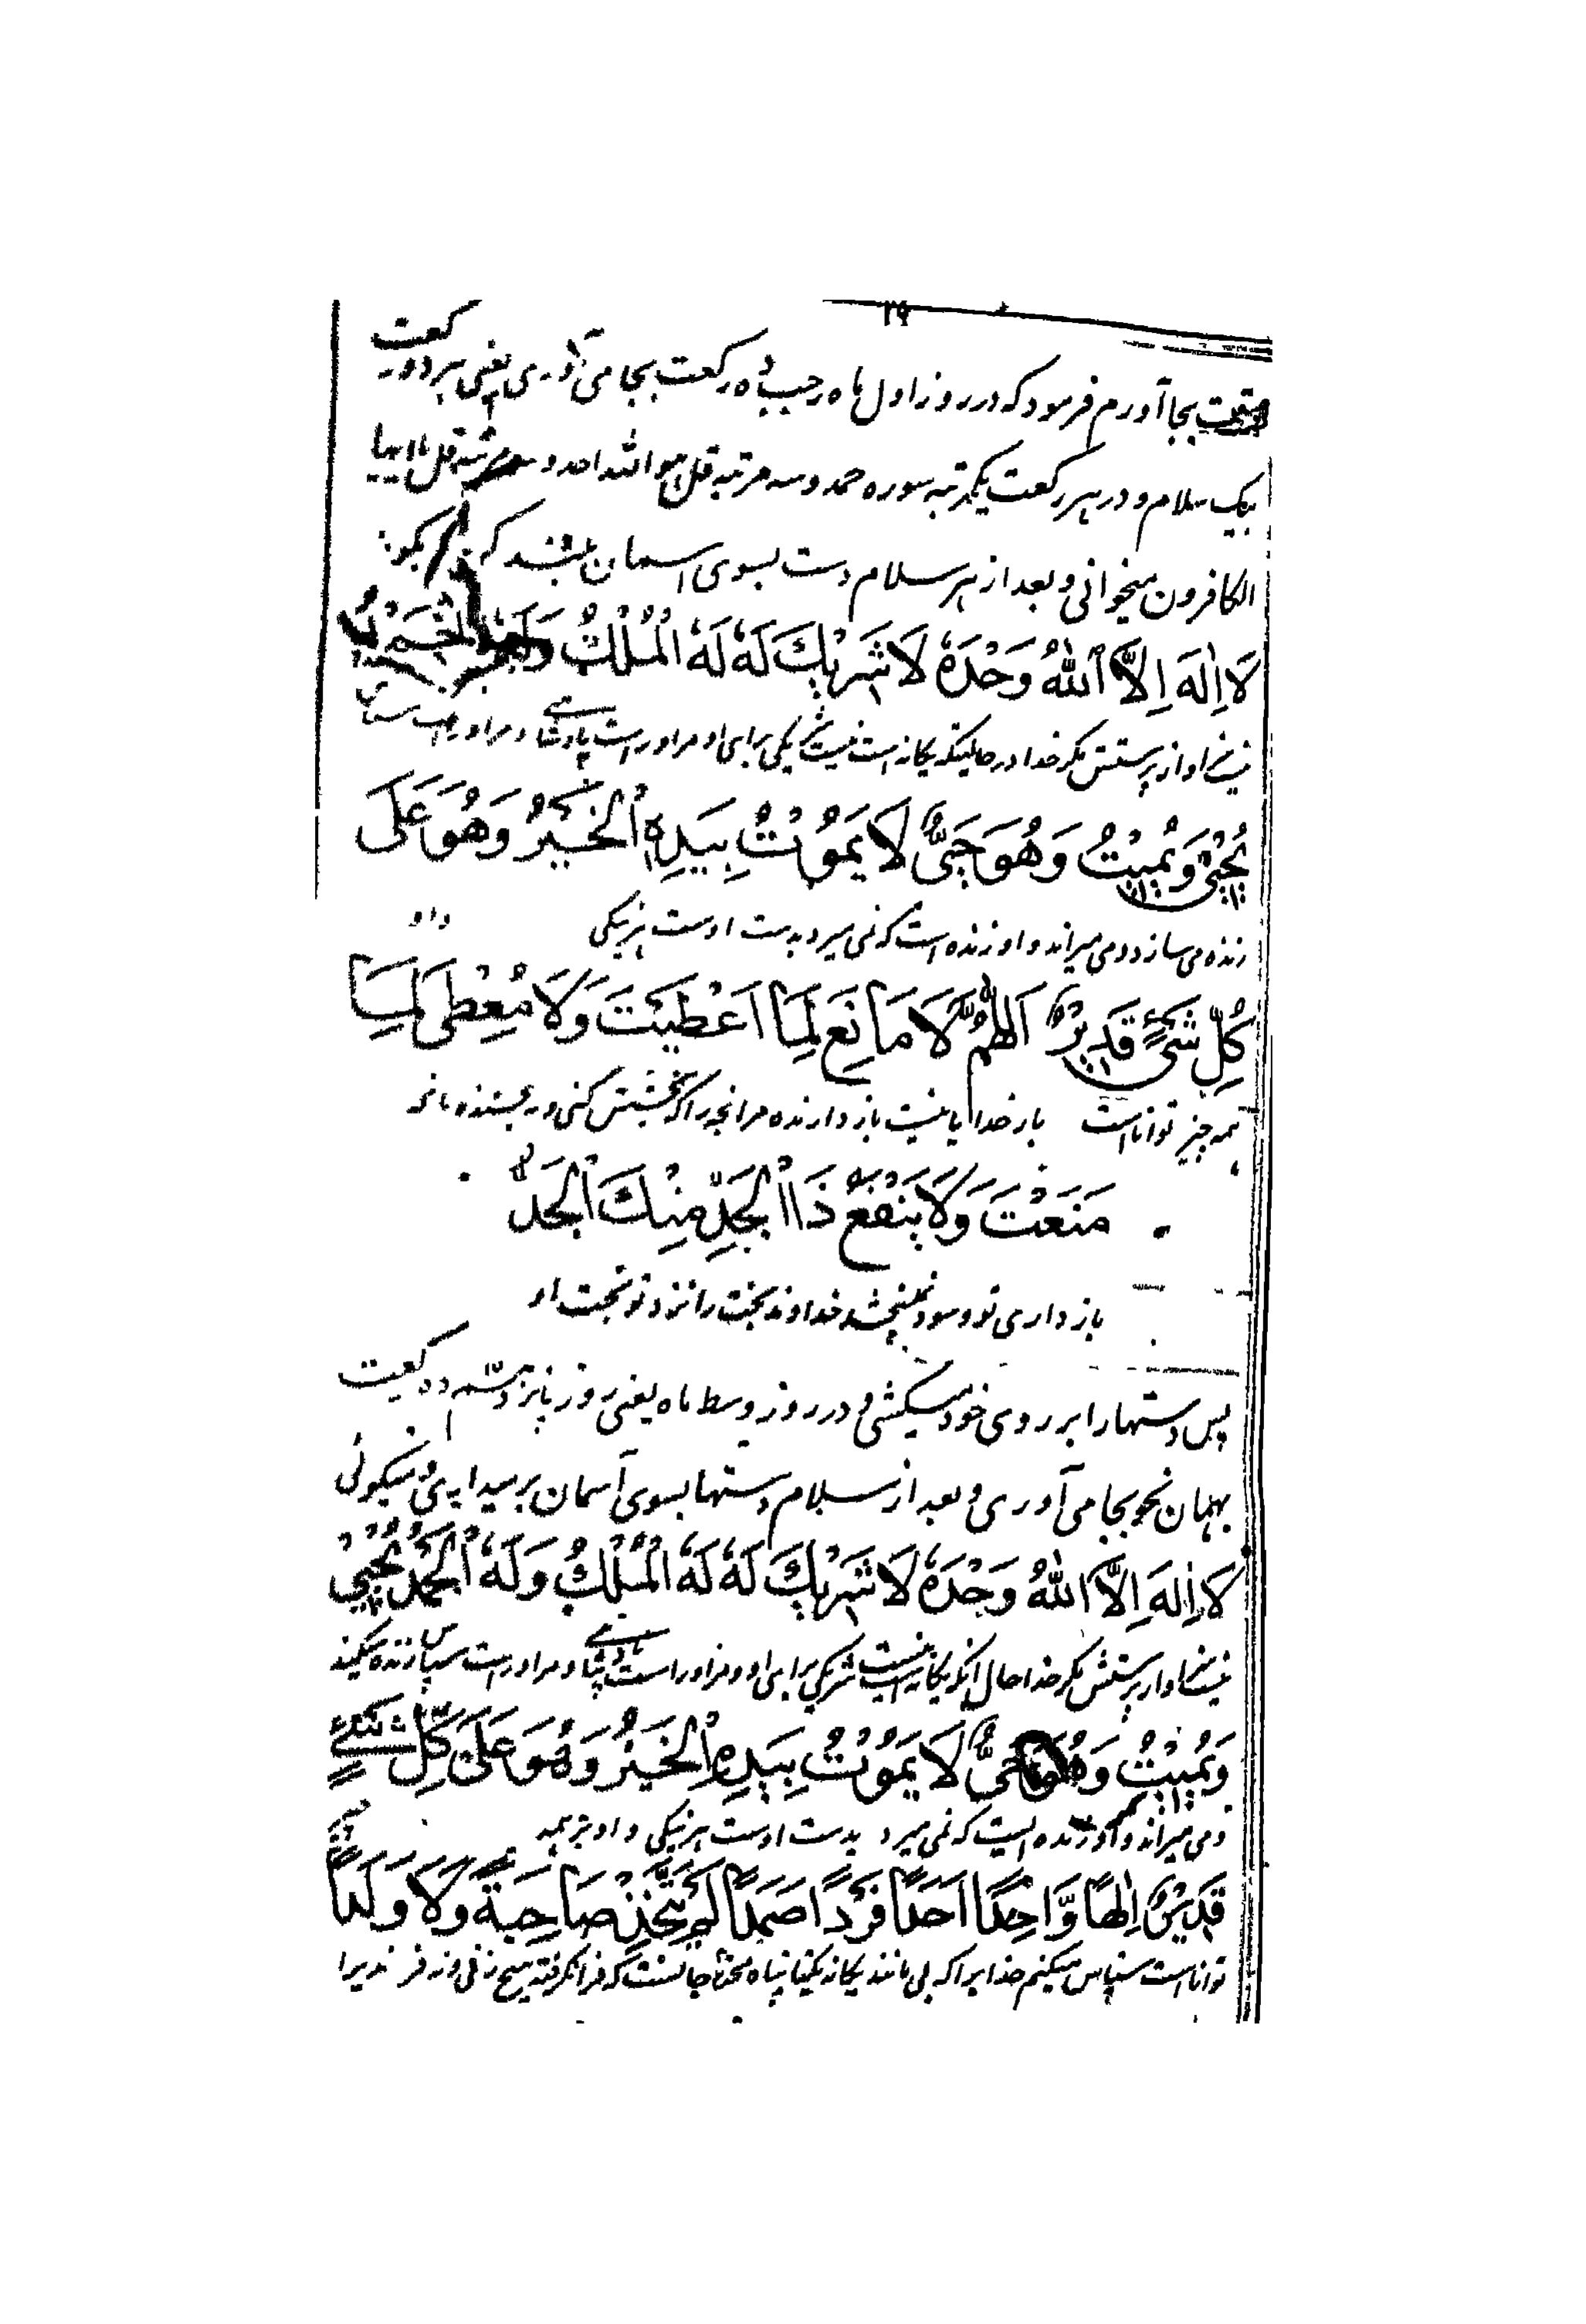 ۲۹
بجا آورم فرمود که در روز اول ماه رجب ده رکعت بجا می آوری یعنی هر دو رکعت
بیک سلام و در هر رکعت یکمرتبه سوره حمد و سه مرتبه قل هو الله احد و سه مرتبه قل یا ایها
الکافرون میخوانی و بعد از هر سلام دست بسوی اسمان بلند کن و بگو
لَا اِلٰهَ اِلَّا اللهُ وَحْدَهٗ لَا شَرِيْكَ لَهٗ لَهُ الْمُلْكُ وَلَهُ الْحَمْدُ
نیست سزاوار پرستش مگر خدا در حالیکه یگانه است نیست شریکی برای او مر او راست پادشاهی و مر او راست ستایش
يُحْيِيْ وَيُمِيْتُ وَهُوَ حَيٌّ لَا يَمُوْتُ بِيَدِهِ الْخَيْرُ وَهُوَ عَلٰى
زنده می سازد و می میراند و او زنده است که نمی میرد بدست اوست هر نیکی و او
كُلِّ شَيْءٍ قَدِيْرٌ اَللّٰهُمَّ لَا مَانِعَ لِمَا اَعْطَيْتَ وَلَا مُعْطِيَ لِمَا
همه چیز توانا است بار خدایا نیست باز دارنده مر انچه را که بخشش کنی و نه بخشنده مانچه
مَنَعْتَ وَلَا يَنْفَعُ ذَا الْجَدِّ مِنْكَ الْجَدُّ
باز داری تو و سود نمی بخشد خداوند بخت را نزد تو بخت او
پس دستها را بر روی خود میکشی و در روز وسط ماه یعنی روز پانزدهم ده رکعت
بهمان نحو بجا می آوری و بعد از سلام دستها بسوی آسمان بر میداری و میگوئی
لَا اِلٰهَ اِلَّا اللهُ وَحْدَهٗ لَا شَرِيْكَ لَهٗ لَهُ الْمُلْكُ وَلَهُ الْحَمْدُ يُحْيِيْ
نیست سزاوار پرستش مگر خدا حال آنکه یگانه است نیست شریکی برای او و مر او راست پادشاهی و مر او راست سپاس زنده میکند
وَيُمِيْتُ وَهُوَ حَيٌّ لَا يَمُوْتُ بِيَدِهِ الْخَيْرُ وَهُوَ عَلٰى كُلِّ شَيْءٍ
و می میراند و او زنده ایست که نمی میرد بدست اوست هر نیکی و او بر همه چیز
قَدِيْرٌ اِلٰهًا وَّاحِدًا اَحَدًا فَرْدًا صَمَدًا لَمْ يَتَّخِذْ صَاحِبَةً وَّلَا وَلَدًا
توانا است سپاس میکنم خدا یرا که بی مانند یگانه یکتا پناه محتاجانست که فرا نگرفته هیچ زنی و نه فرزندیرا